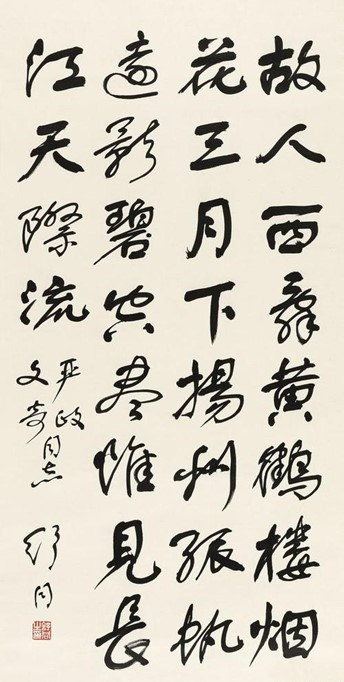 故人西辞黄鶴樓烟
花三月下揚州孤帆
遠影碧空盡惟見長
江天際流
严政
文奇同志
舒同